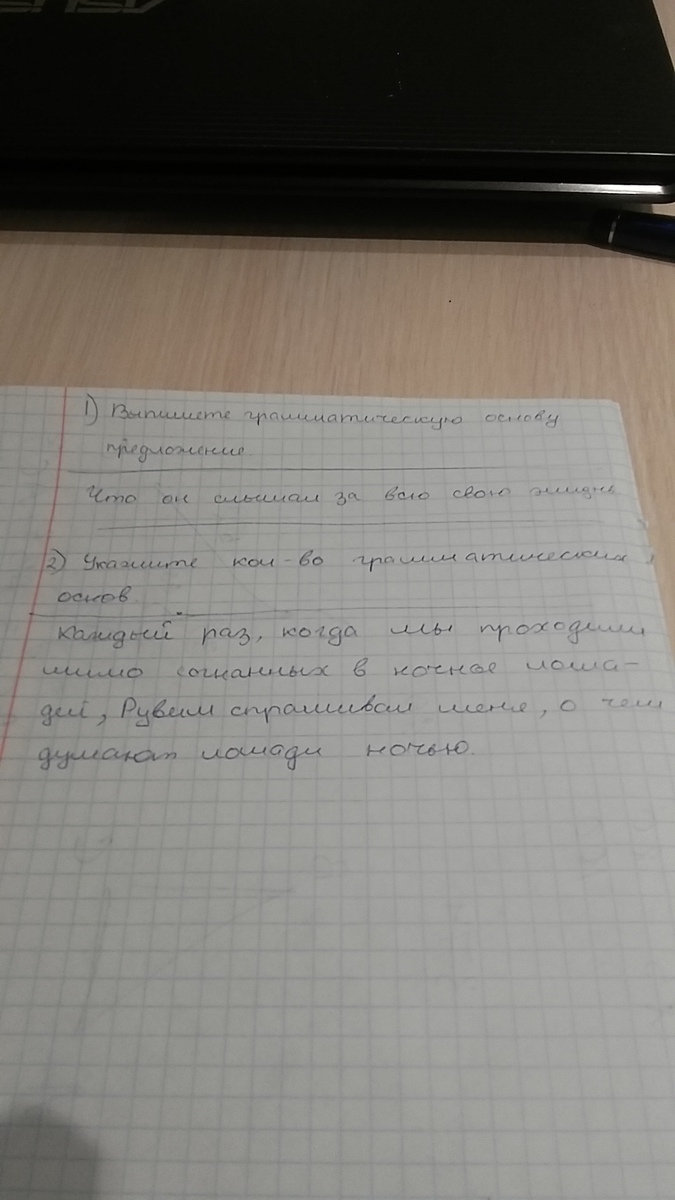 ASUS
1) Выпишете грамматическую основу
предложение
Что он слышал за всю свою жизнь
2) Укажите кол-во грамматических
основ.
Каждый раз, когда мы проходили
мимо согнанных в ночное лоша-
дей, Рувим спрашивал меня, о чем
думают лошади ночью.